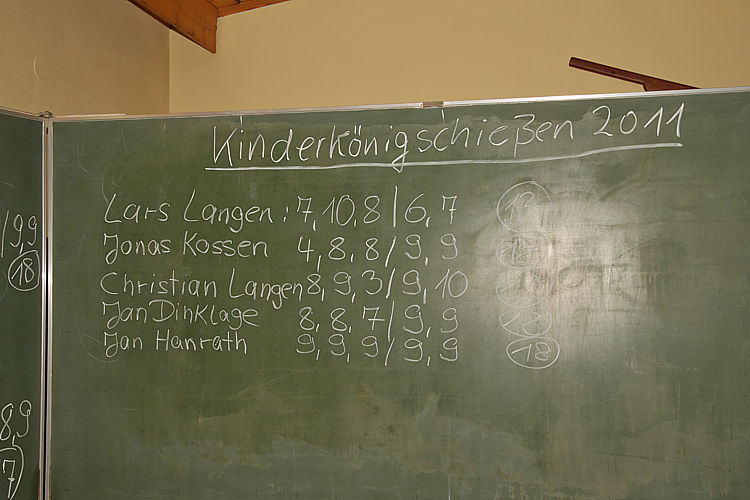 Kinderkönigschießen 2011
Lars Langen: 7, 10, 8 / 6, 7 13
Jonas Kossen 4, 8, 8 / 9, 9 18
Christian Langen 8, 9, 3 / 9, 10
Jan Dinklage 8, 8, 7 / 9, 9 18
Jan Hanrath 9, 9, 9 / 9, 9 18
/ 9, 9
18
8, 9
7